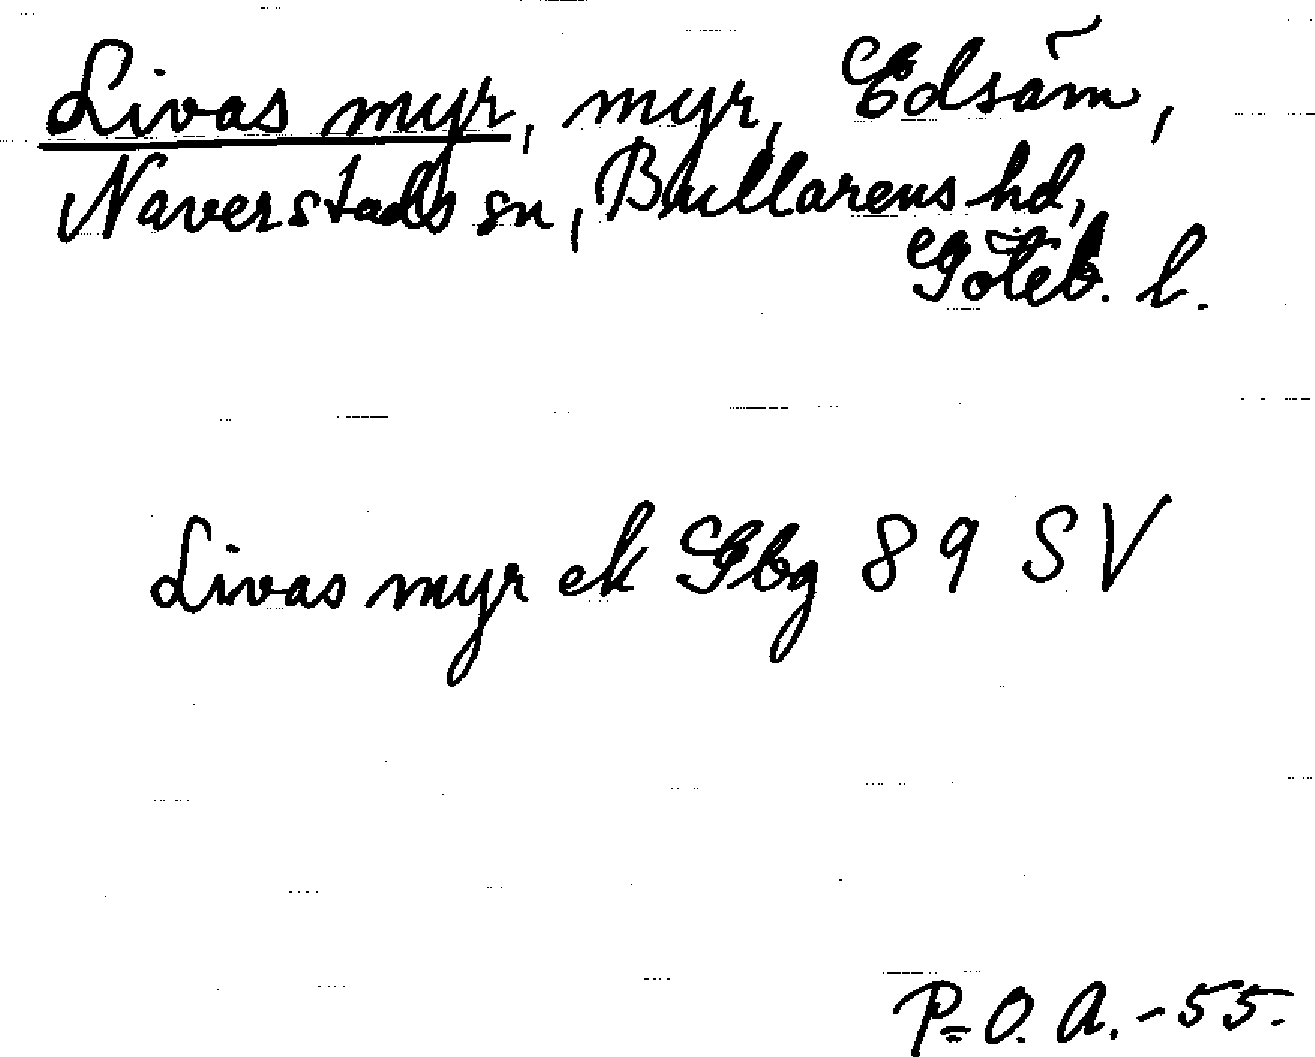 Livas myr, myr, Edsäm,
Naverstads sn, Bullarens hd,
Göteb. l.
Livas myr ek Gbg 89 SV
P-O. A. -55.